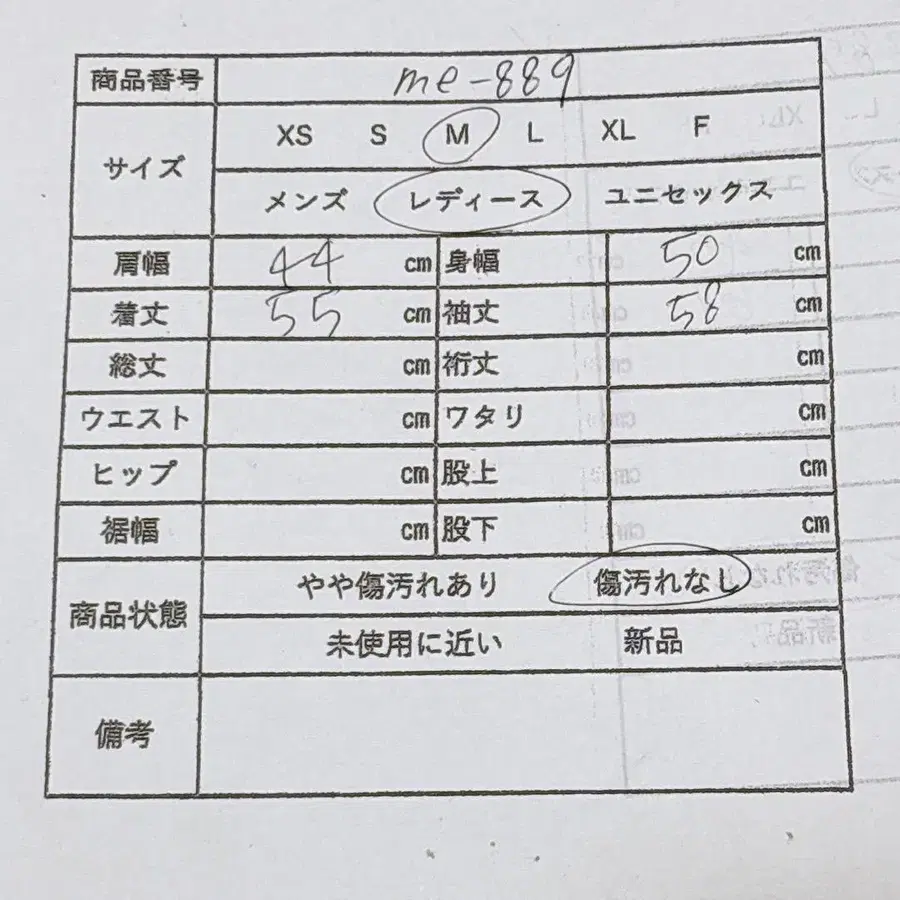 商品番号 me-889
サイズ XS S M L XL F
メンズ レディース ユニセックス
肩幅 44 cm 身幅 50 cm
着丈 55 cm 袖丈 58 cm
総丈 cm 裄丈 cm
ウエスト cm ワタリ cm
ヒップ cm 股上 cm
裾幅 cm 股下 cm
商品状態 やや傷汚れあり 傷汚れなし
未使用に近い 新品
備考